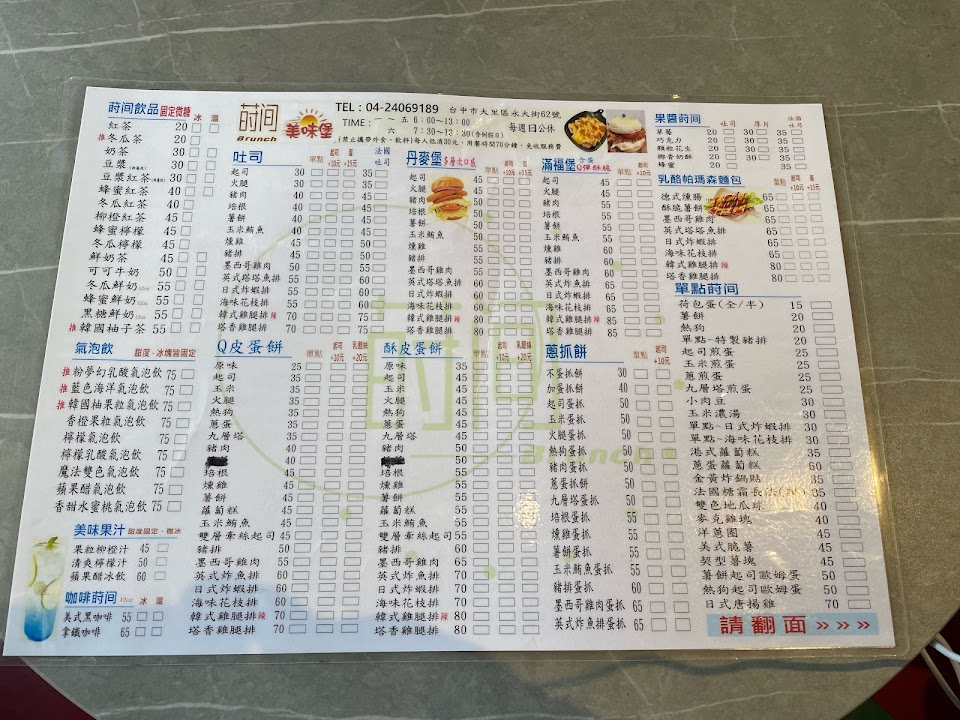 蒔间飲品 固定微糖 冰 溫
紅茶 20
推冬瓜茶 20
奶茶 30
豆漿 30
豆漿紅茶 30
蜂蜜紅茶 40
冬瓜紅茶 40
柳橙紅茶 45
蜂蜜檸檬 45
冬瓜檸檬 45
鮮奶茶 45
可可牛奶 50
冬瓜鮮奶 55
蜂蜜鮮奶 55
黑糖鮮奶 55
推韓國柚子茶 55
氣泡飲 甜度、冰塊皆固定
推粉夢幻乳酸氣泡飲 75
推藍色海洋氣泡飲 75
推韓國柚果粒氣泡飲 75
香橙果粒氣泡飲 75
檸檬氣泡飲 75
檸檬乳酸氣泡飲 75
魔法雙色氣泡飲 75
蘋果醋氣泡飲 75
香甜水蜜桃氣泡飲 75
美味果汁 甜度固定、微冰
果粒柳橙汁 45
清爽檸檬汁 50
蘋果醋冰飲 60
咖啡蒔间 冰 溫
美式黑咖啡 55
拿鐵咖啡 65
蒔间
Brunch
美味堡
TEL:04-24069189 台中市大里區永大街62號
TIME: 一 ~ 五 6:00~13:00
六 7:30~13:30(含例假日) 每週日公休
(禁止攜帶外食、飲料|每人低消30元,用餐時間70分鐘,免收服務費
吐司 單點 起司+10元 蛋+15元 法國吐司
起司 30 35
火腿 30 35
豬肉 40 45
培根 40 45
薯餅 40 45
玉米鮪魚 40 45
燻雞 45 50
豬排 45 50
墨西哥雞肉 50 55
英式炸魚排 55 60
日式炸蝦排 55 60
海味花枝排 55 60
韓式雞腿排辣 70 75
塔香雞腿排 70 75
丹麥堡 多層次口感 單點 起司+10元 蛋+15元
起司 45
火腿 45
豬肉 55
培根 55
薯餅 55
玉米鮪魚 55
燻雞 55
豬排 55
墨西哥雞肉 55
英式塔塔魚排 60
日式炸蝦排 60
海味花枝排 60
韓式雞腿排辣 80
塔香雞腿排 80
滿福堡 含蛋 Q彈酥脆 單點 起司+10元
起司 45
火腿 45
豬肉 55
培根 55
薯餅 55
玉米鮪魚 55
燻雞 55
豬排 55
墨西哥雞肉 60
英式炸魚排 60
日式炸蝦排 65
海味花枝排 65
韓式雞腿排辣 85
塔香雞腿排 85
果醬蒔间 吐司 厚片 法國吐司
草莓 20 30 35
巧克力 20 30 35
顆粒花生 20 30 35
椰香奶酥 20 30 35
蜂蜜 20 30 35
乳酪帕瑪森麵包 單點 起司+10元 蛋+15元
德式燻腸 65
酥脆薯餅 65
墨西哥雞肉 65
英式塔塔魚排 65
日式炸蝦排 65
海味花枝排 65
韓式雞腿排辣 80
塔香雞腿排 80
單點蒔间
荷包蛋(全/半) 15
薯餅 20
熱狗 20
單點-特製豬排 20
起司煎蛋 25
玉米煎蛋 25
蔥煎蛋 25
九層塔煎蛋 25
小肉豆 30
玉米濃湯 30
單點-日式炸蝦排 30
單點-海味花枝排 30
港式蘿蔔糕 35
蔥蛋蘿蔔糕 60
金黃炸鍋貼 35
法國糖霜長法 35
雙色地瓜球 40
麥克雞塊 40
洋蔥圈 45
美式脆薯 45
契型薯塊 45
薯餅起司歐姆蛋 50
熱狗起司歐姆蛋 50
日式唐揚雞 70
Q皮蛋餅 單點 起司+10元 乳酪絲+20元
原味 25
起司 35
玉米 35
火腿 35
熱狗 35
蔥蛋 35
九層塔 35
豬肉 40
40
培根 45
燻雞 45
薯餅 45
蘿蔔糕 45
玉米鮪魚 45
雙層牽絲起司 45
豬排 50
墨西哥雞肉 55
英式炸魚排 60
日式炸蝦排 60
海味花枝排 60
韓式雞腿排辣 70
塔香雞腿排 70
酥皮蛋餅 單點 起司+10元 乳酪絲+20元
原味 35
起司 45
玉米 45
火腿 45
熱狗 45
蔥蛋 45
九層塔 45
豬肉 50
50
培根 55
燻雞 55
薯餅 55
蘿蔔糕 55
玉米鮪魚 55
雙層牽絲起司 55
豬排 60
墨西哥雞肉 65
英式炸魚排 70
日式炸蝦排 70
海味花枝排 70
韓式雞腿排辣 80
塔香雞腿排 80
蔥抓餅 單點 起司+10元 乳酪絲+20元
不蛋抓餅 30
加蛋抓餅 40
起司蛋抓 50
玉米蛋抓 50
火腿蛋抓 50
熱狗蛋抓 50
豬肉蛋抓 50
蔥蛋抓餅 50
九層塔蛋抓 50
培根蛋抓 55
燻雞蛋抓 55
薯餅蛋抓 55
玉米鮪魚蛋抓 55
豬排蛋抓 60
墨西哥雞肉蛋抓 65
英式炸魚排蛋抓 65
請翻面 »»»
蒔间
Brunch